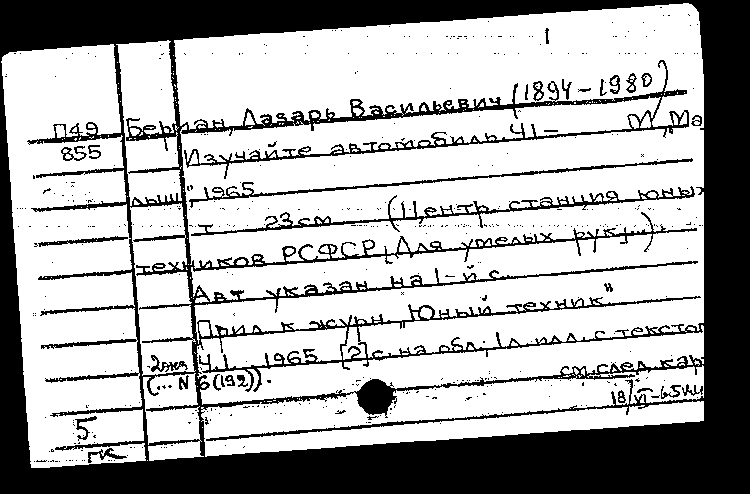 1
П49 Берман, Лазарь Васильевич (1894-1980)
855 Изучайте автомобиль. Ч1- М, „Ма
лыш", 1965.
т 23см (Центр. станция юных
техников РСФСР. Для умелых рук).
Авт указан на 1-й с.
Прил к журн. „Юный техник"
2экз Ч.1. 1965 [2]с. на обл; 1л. илл. с тексто
(... N 6 (192)). см. след. кар
18/VI-65
5.
ГК